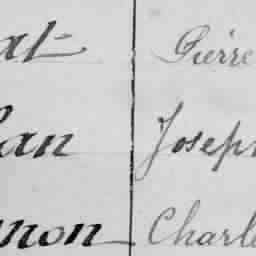 at Pierre
lan Joseph
nnon Charle